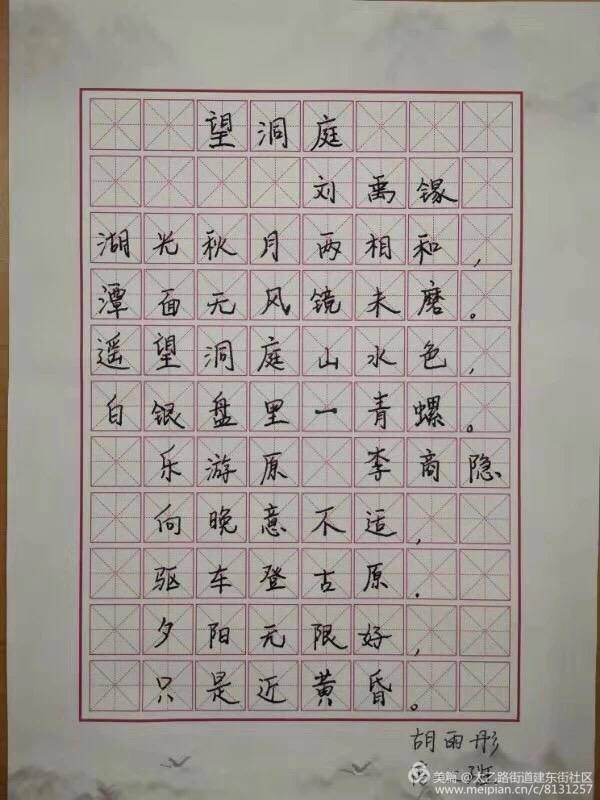 望洞庭
刘禹锡
湖光秋月两相和，
潭面无风镜未磨。
遥望洞庭山水色，
白银盘里一青螺。
乐游原 李商隐
向晚意不适，
驱车登古原.
夕阳无限好，
只是近黄昏。
胡雨彤
美篇 @太乙路街道建东街社区
www.meipian.cn/c/8131257